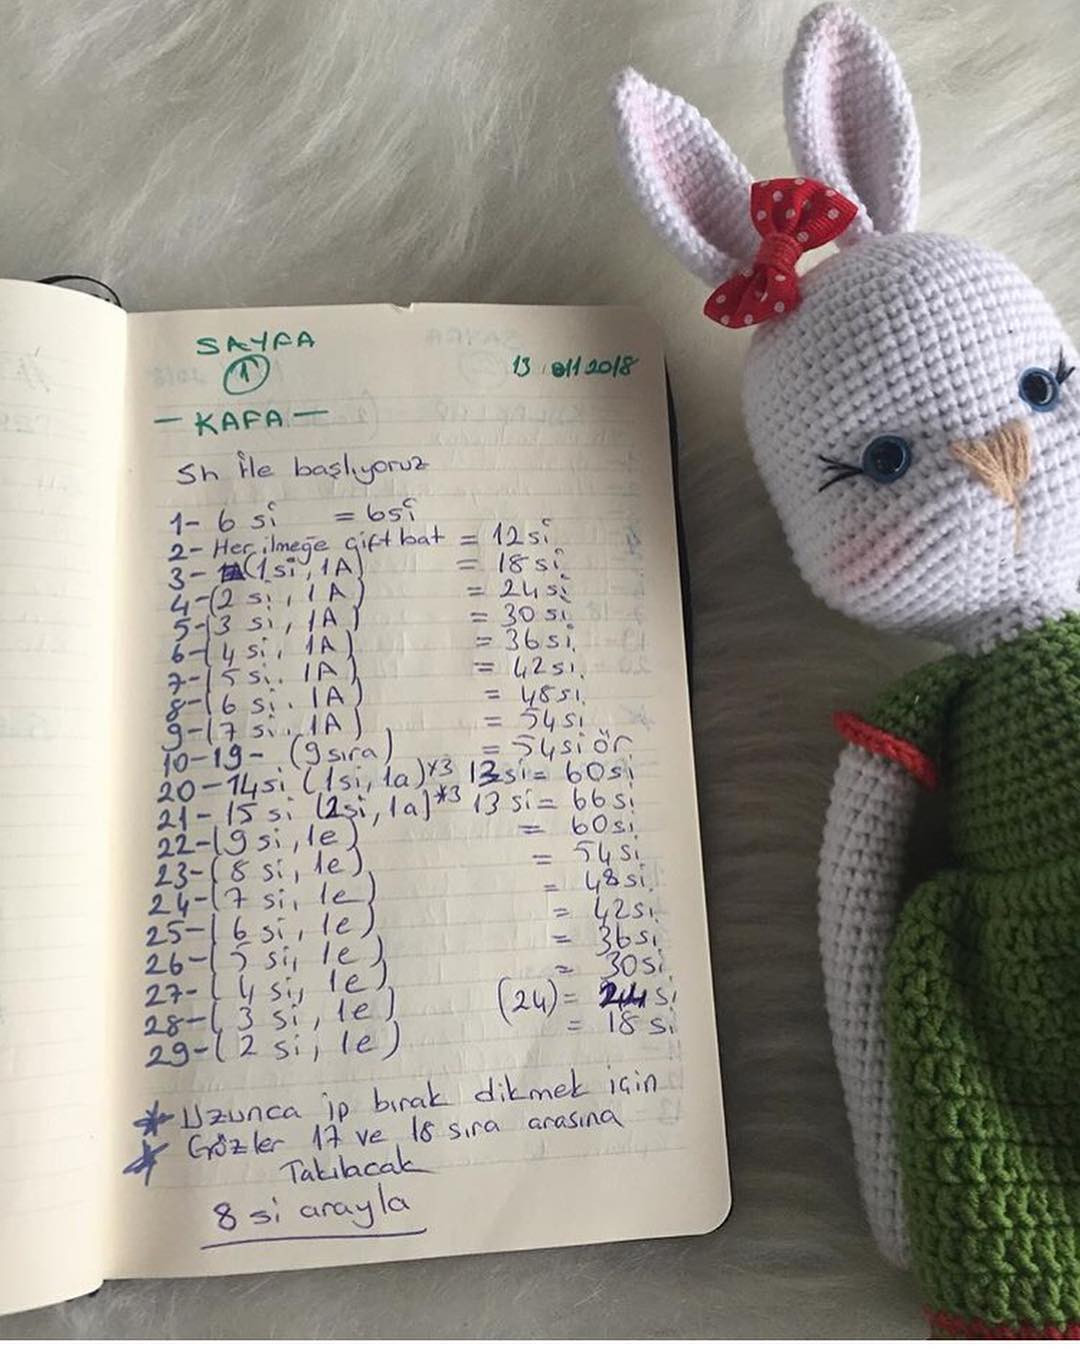 SAYFA
1
13 011 2018
— KAFA —
Sh ile başlıyoruz
1- 6 si = 6si
2- Her ilmeğe çift bat = 12si
3- (1si, 1A) = 18si
4-(2 si, 1A) = 24si
5-(3 si, 1A) = 30 si
6-(4 si, 1A) = 36si
7-(5 si, 1A) = 42si
8-(6 si, 1A) = 48si
9-(7 si, 1A) = 54si
10-19- (9 sıra) = 54si ör
20-14si (1si, 1a)*3 13si= 60si
21- 15 si (2si, 1a)*3 13 si= 66si
22-(9 si, 1e) = 60si
23-(8 si, 1e) = 54si
24-(7 si, 1e) = 48si
25-(6 si, 1e) = 42si
26-(5 si, 1e) = 36si
27-(4 si, 1e) = 30si
28-(3 si, 1e) (24)= 24si
29-(2 si, 1e) = 18 si
* Uzunca ip bırak dikmek için
* Gözler 17 ve 18 sıra arasına
Takılacak
8 si arayla